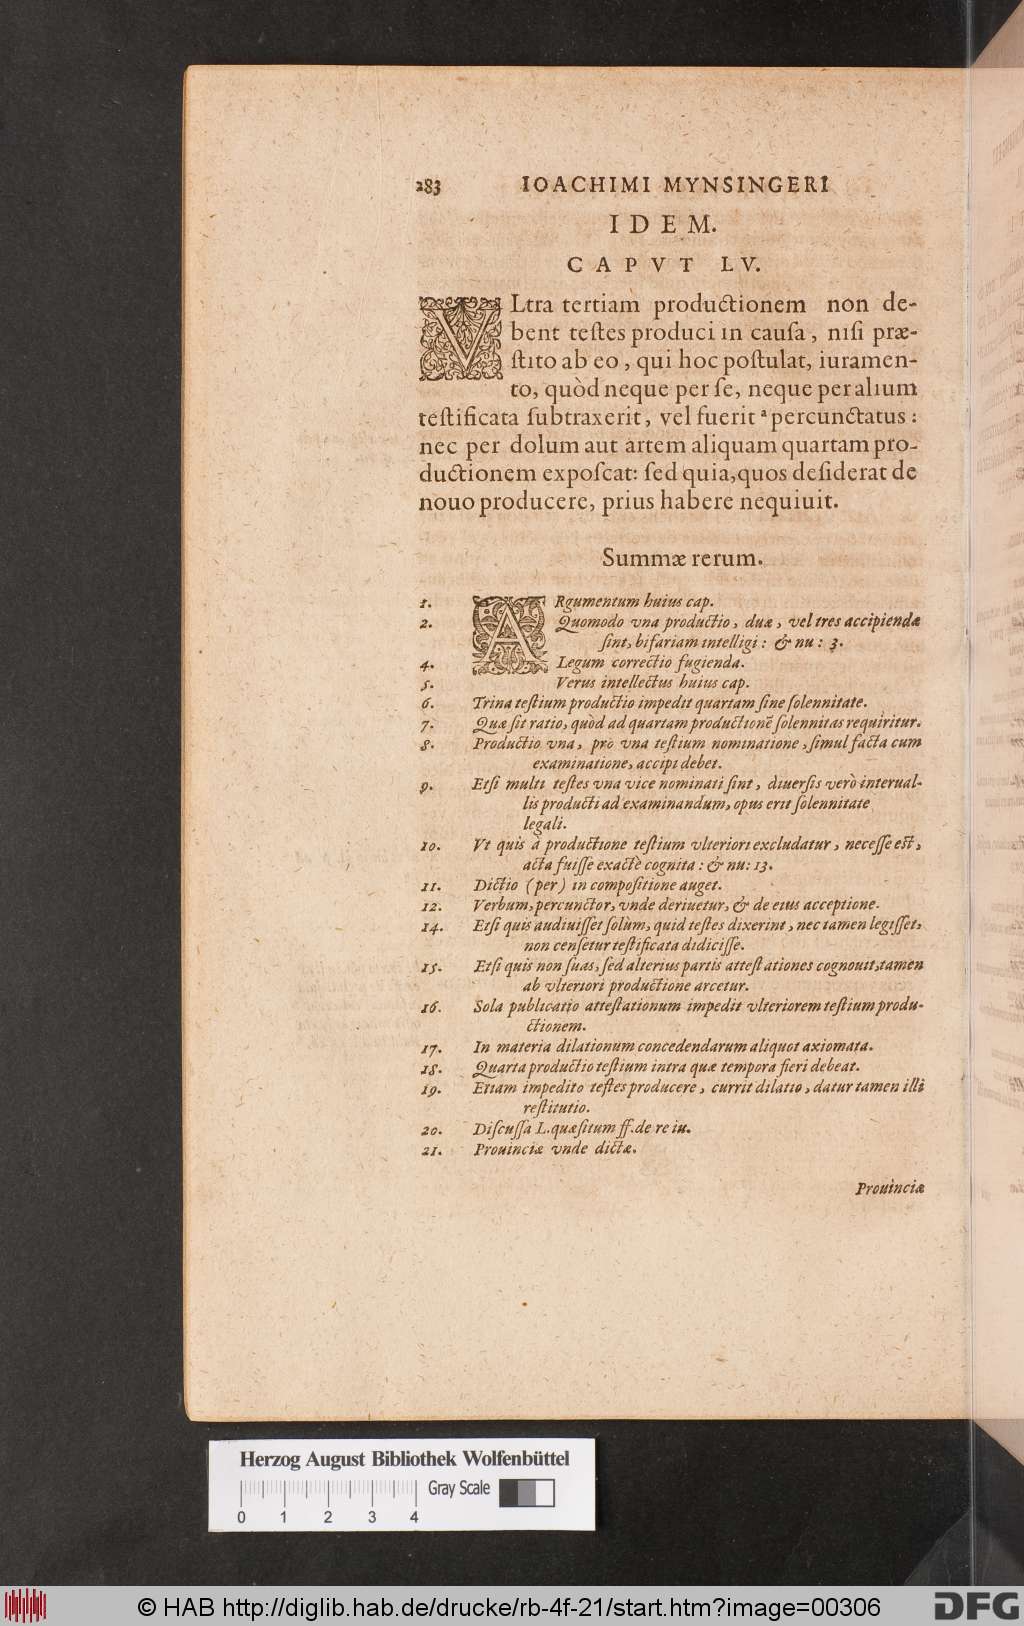 283 IOACHIMI MYNSINGERI
IDEM.
CAPVT LV.
VLtra tertiam productionem non de-
bent testes produci in causa, nisi præ-
stito ab eo, qui hoc postulat, iuramen-
to, quòd neque per se, neque per alium
testificata subtraxerit, vel fuerit ª percunctatus:
nec per dolum aut artem aliquam quartam pro-
ductionem exposcat: sed quia, quos desiderat de
nouo producere, prius habere nequiuit.
Summæ rerum.
1. ARgumentum huius cap.
2. Quomodo vna productio, duæ, vel tres accipiendæ
sint, bifariam intelligi: & nu: 3.
4. Legum correctio fugienda.
5. Verus intellectus huius cap.
6. Trina testium productio impedit quartam sine solennitate.
7. Quæ sit ratio, quòd ad quartam productionē solennitas requiritur.
8. Productio vna, pro vna testium nominatione, simul facta cum
examinatione, accipi debet.
9. Etsi multi testes vna vice nominati sint, diuersis verò interual-
lis producti ad examinandum, opus erit solennitate
legali.
10. Vt quis à productione testium vlteriori excludatur, necesse est,
acta fuisse exactè cognita: & nu: 13.
11. Dictio (per) in compositione auget.
12. Verbum, percunctor, vnde deriuetur, & de eius acceptione.
14. Etsi quis audiuisset solùm, quid testes dixerint, nec tamen legisset,
non censetur testificata didicisse.
15. Etsi quis non suas, sed alterius partis attestationes cognouit, tamen
ab vlteriori productione arcetur.
16. Sola publicatio attestationum impedit vlteriorem testium produ-
ctionem.
17. In materia dilationum concedendarum aliquot axiomata.
18. Quarta productio testium intra quæ tempora fieri debeat.
19. Etiam impedito testes producere, currit dilatio, datur tamen illi
restitutio.
20. Discussa L. quæsitum ff. de re iu.
21. Prouinciæ vnde dictæ.
Prouinciæ
Herzog August Bibliothek Wolfenbüttel
Gray Scale
0 1 2 3 4
© HAB http://diglib.hab.de/drucke/rb-4f-21/start.htm?image=00306
DFG